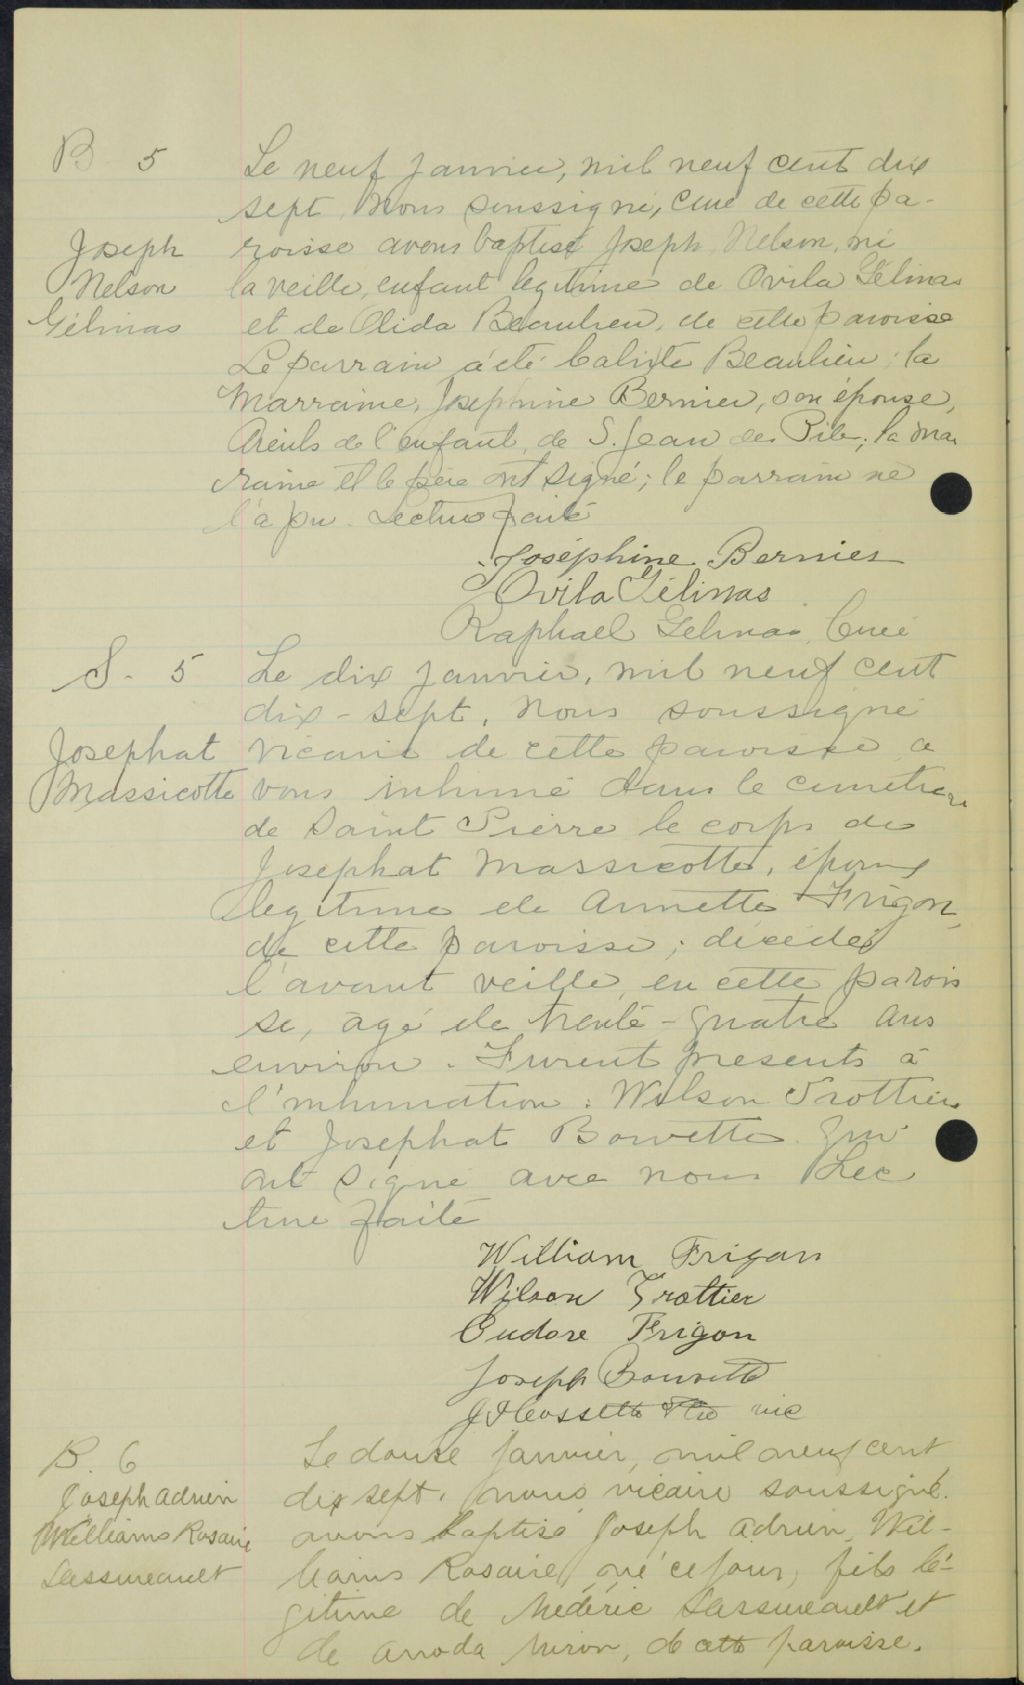 B 5
Joseph
Nelson
Gélinas
Le neuf janvier, mil neuf cent dix
sept, nous soussigné, curé de cette pa-
roisse avons baptisé Joseph, Nelson, né
la veille, enfant legitime de Ovila Gélinas
et de Olida Beaulieu, de cette paroisse
Le parrain a été Calixte Beaulieu; la
Marraine, Josephine Bernier, son épouse,
Aïeuls de l'enfant, de S. Jean des Piles; la mar
raine et le père ont signé; le parrain ne
l'a pu. Lecture faite
Joséphine Bernier
Ovila Gélinas
Raphael Gelinas, Curé
S. 5
Josephat
Massicotte
Le dix janvier, mil neuf cent
dix-sept, nous soussigné
vicaire de cette paroisse a
vons inhumé dans le cimetiere
de Saint Pierre le corps de
Josephat Massicotte, époux
legitime de Annette Frigon,
de cette paroisse; décédé
l'avant veille, en cette parois
se, âgé de trente-quatre ans
environ. Furent presents à
l'inhumation: Wilson Trottier
et Josephat Bouvette qui
ont signé avec nous Lec
ture faite
William Frigon
Wilson Trottier
Eudore Frigon
Joseph Bouvette
Cossette Ptre vic
B. 6
Joseph Adrien
Williams Rosaire
Lassureault
Le douze Janvier, mil neuf cent
dix sept, nous vicaire soussigné
avons baptisé Joseph Adrien Wil-
liams Rosaire, né ce jour, fils lé-
gitime de Médéric Lassureault et
de Miron, de cette paroisse.